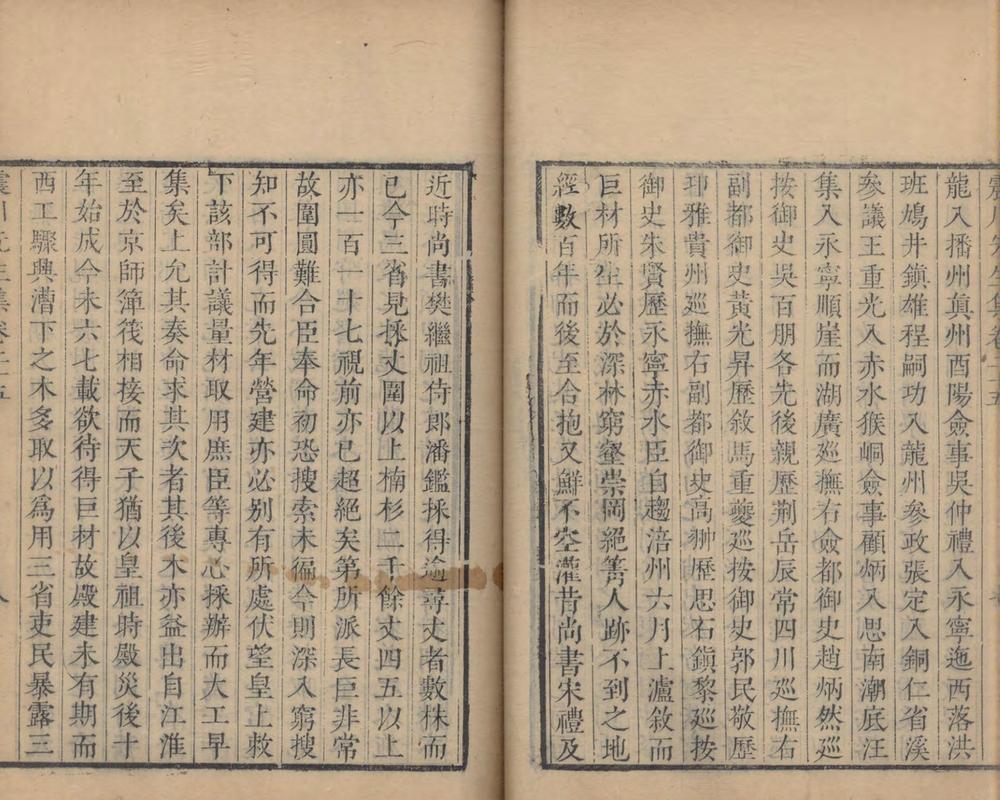 震川先生集卷二十五
龍入播州眞州酉陽僉事吳仲禮入永寧迤西落洪
班鳩井鎭雄程嗣功入龍州參政張定入銅仁省溪
參議王重光入赤水猴峒僉事顧炳入思南潮底汪
集入永寧順崖而湖廣巡撫右僉都御史趙炳然巡
按御史吳百朋各先後親歷荆岳辰常四川巡撫右
副都御史黃光昇歷敘馬重夔巡按御史郭民敬歷
邛雅貴州巡撫右副都御史高翀歷思石鎭黎巡按
御史朱賢歷永寧赤水臣自趨涪州六月上瀘敘而
巨材所生必於深林窮壑崇岡絕箐人跡不到之地
經數百年而後至合抱又鮮不空灌昔尚書宋禮及
近時尚書樊繼祖侍郎潘鑑採得逾尋丈者數株而
已今三省見採丈圍以上楠杉二千餘丈四五以上
亦一百一十七視前亦已超絕矣第所派長巨非常
故圍圓難合臣奉命初恐搜索未徧今則深入窮搜
知不可得而先年營建亦必别有所處伏望皇上敕
下該部計議量材取用庶臣等專心採辦而大工早
集矣上允其奏命求其次者其後木亦益出自江淮
至於京師簰筏相接而天子猶以皇祖時殿災後十
年始成今未六七載欲待得巨材故殿建未有期而
西工驟興漕下之木多取以爲用三省吏民暴露三
震川先生集卷二十五
八